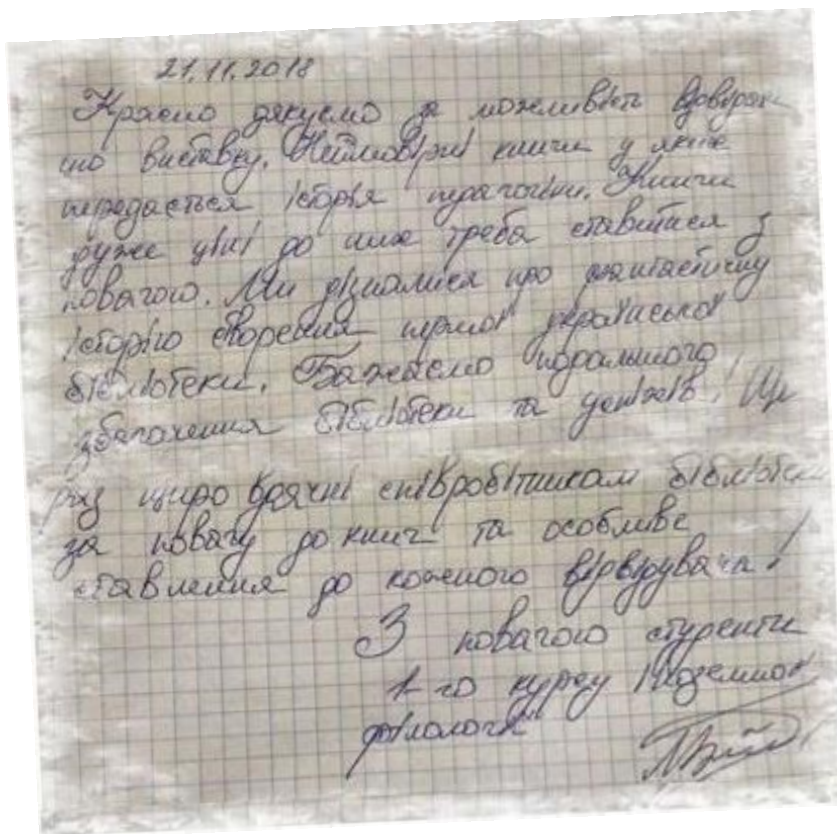 21.11.2018
Красно дякуємо за можливість відвідати
цю виставку. Неймовірні книги у яких
передається історія педагогіки. Книги
дуже цінні до них треба ставитися з
повагою. Ми дізналися про фантастичну
історію створення першої української
бібліотеки. Бажаємо подальшого
збагачення бібліотеки та успіхів! Ще
раз щиро вдячні співробітникам бібліотеки
за повагу до книг та особливе
ставлення до кожного відвідувача!
З повагою студенти
1-го курсу іноземної
філології